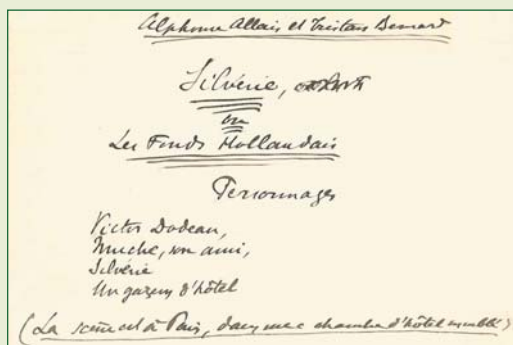 Alphonse Allais et Tristan Bernard
Silvérie,
ou
Les Fonds Hollandais
Personnages
Victor Dodeau,
Muche, son ami,
Silvérie
Un garçon d'hôtel
(La scène est à Paris, dans une chambre d'hôtel meublé)